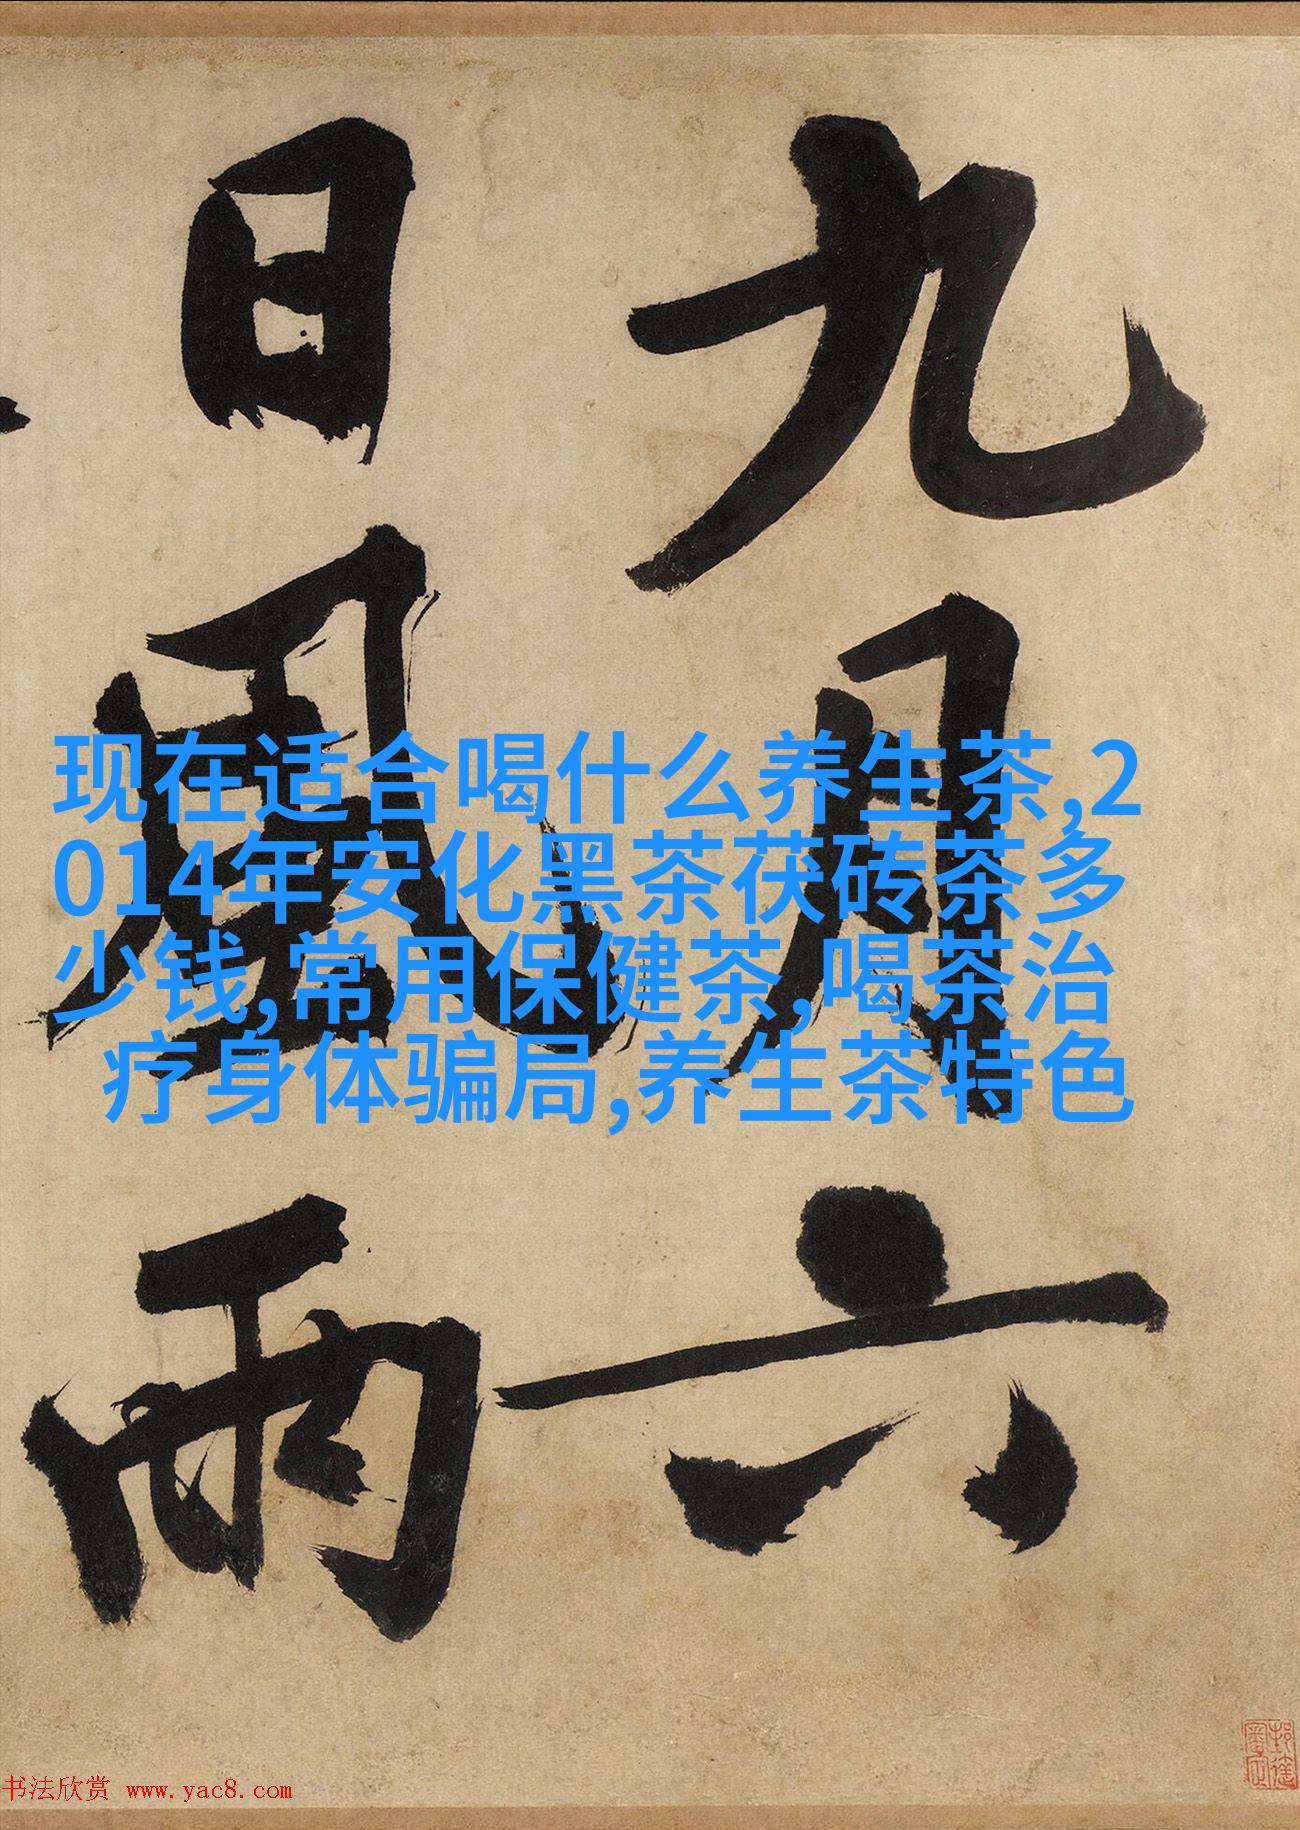 九月六
日風雨
现在适合喝什么养生茶,2
014年安化黑茶茯砖茶多
少钱,常用保健茶,喝茶治
疗身体骗局,养生茶特色
书法欣赏 www.yac8.com